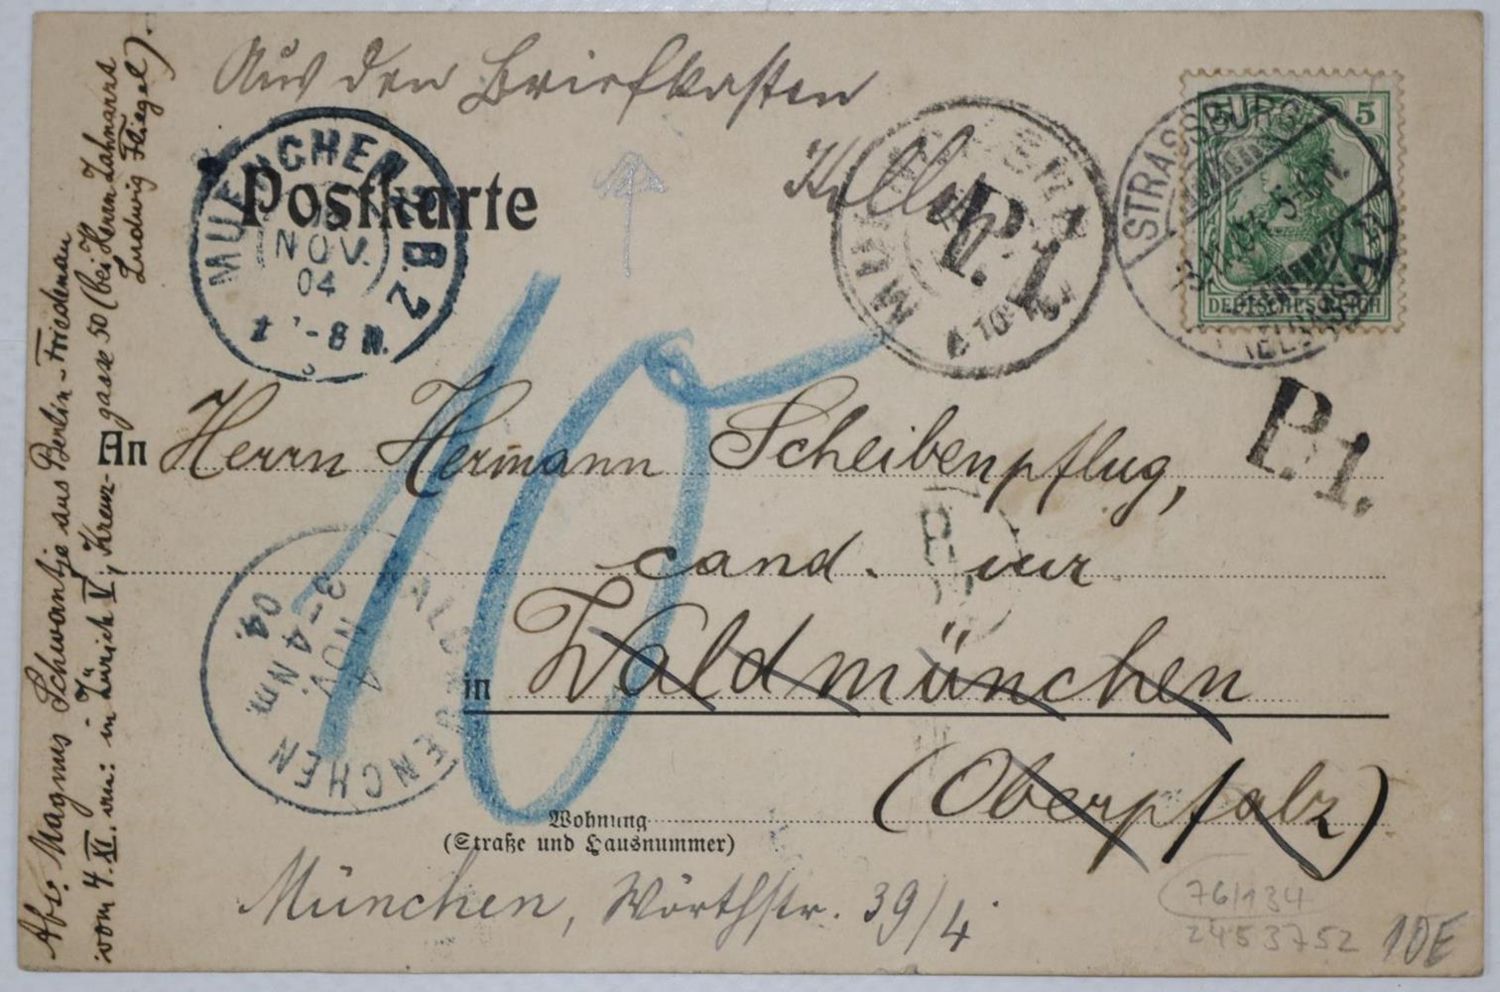 Aus den Briefkasten
Postkarte
MUENCHEN B.2
NOV.
04
-8 N.
P. 1.
10
STRASSBURG
5
DEUTSCHES REICH
P. 1.
An Herrn Hermann Scheibenpflug,
cand. iur
in Waldmünchen
(Oberpfalz)
Wohnung
(Straße und Hausnummer)
München, Wörthstr. 39/4.
WALDMUENCHEN
1
NOV.
3-4 Nm.
04.
10
Abs. Magnus Schwantje aus Berlin-Friedenau
vom 4. XI. an: in Zürich V, Kreuzgasse 50 (bei Herrn Zahnarzt
Ludwig Fliegel).
76/134
2453752
10E